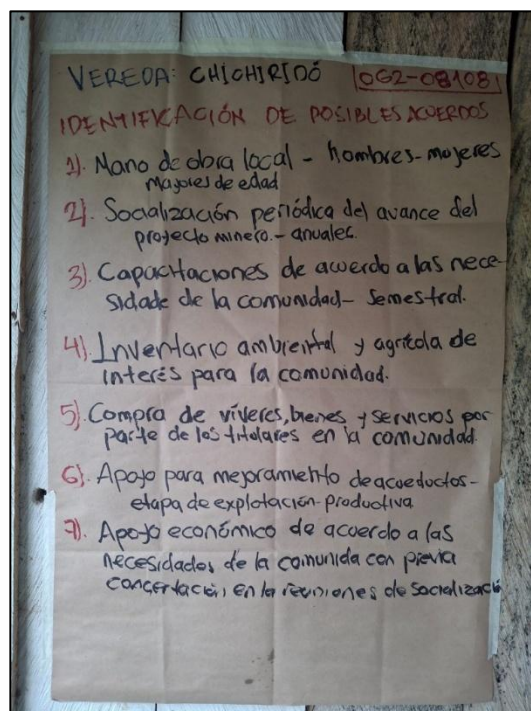 VEREDA: CHICHIRIDÓ OG2-08108
IDENTIFICACIÓN DE POSIBLES ACUERDOS
1). Mano de obra local - hombres - mujeres
mayores de edad
2). Socialización periódica del avance del
proyecto minero. - anuales.
3). Capacitaciones de acuerdo a las nece-
sidade de la comunidad - Semestral.
4). Inventario ambiental y agrícola de
interés para la comunidad.
5). Compra de víveres, bienes y servicios por
parte de los titulares en la comunidad.
6). Apoyo para mejoramiento de acueductos -
etapa de explotación productiva
7). Apoyo económico de acuerdo a las
necesidades de la comunida con previa
concertación, en la reuniones de socializació